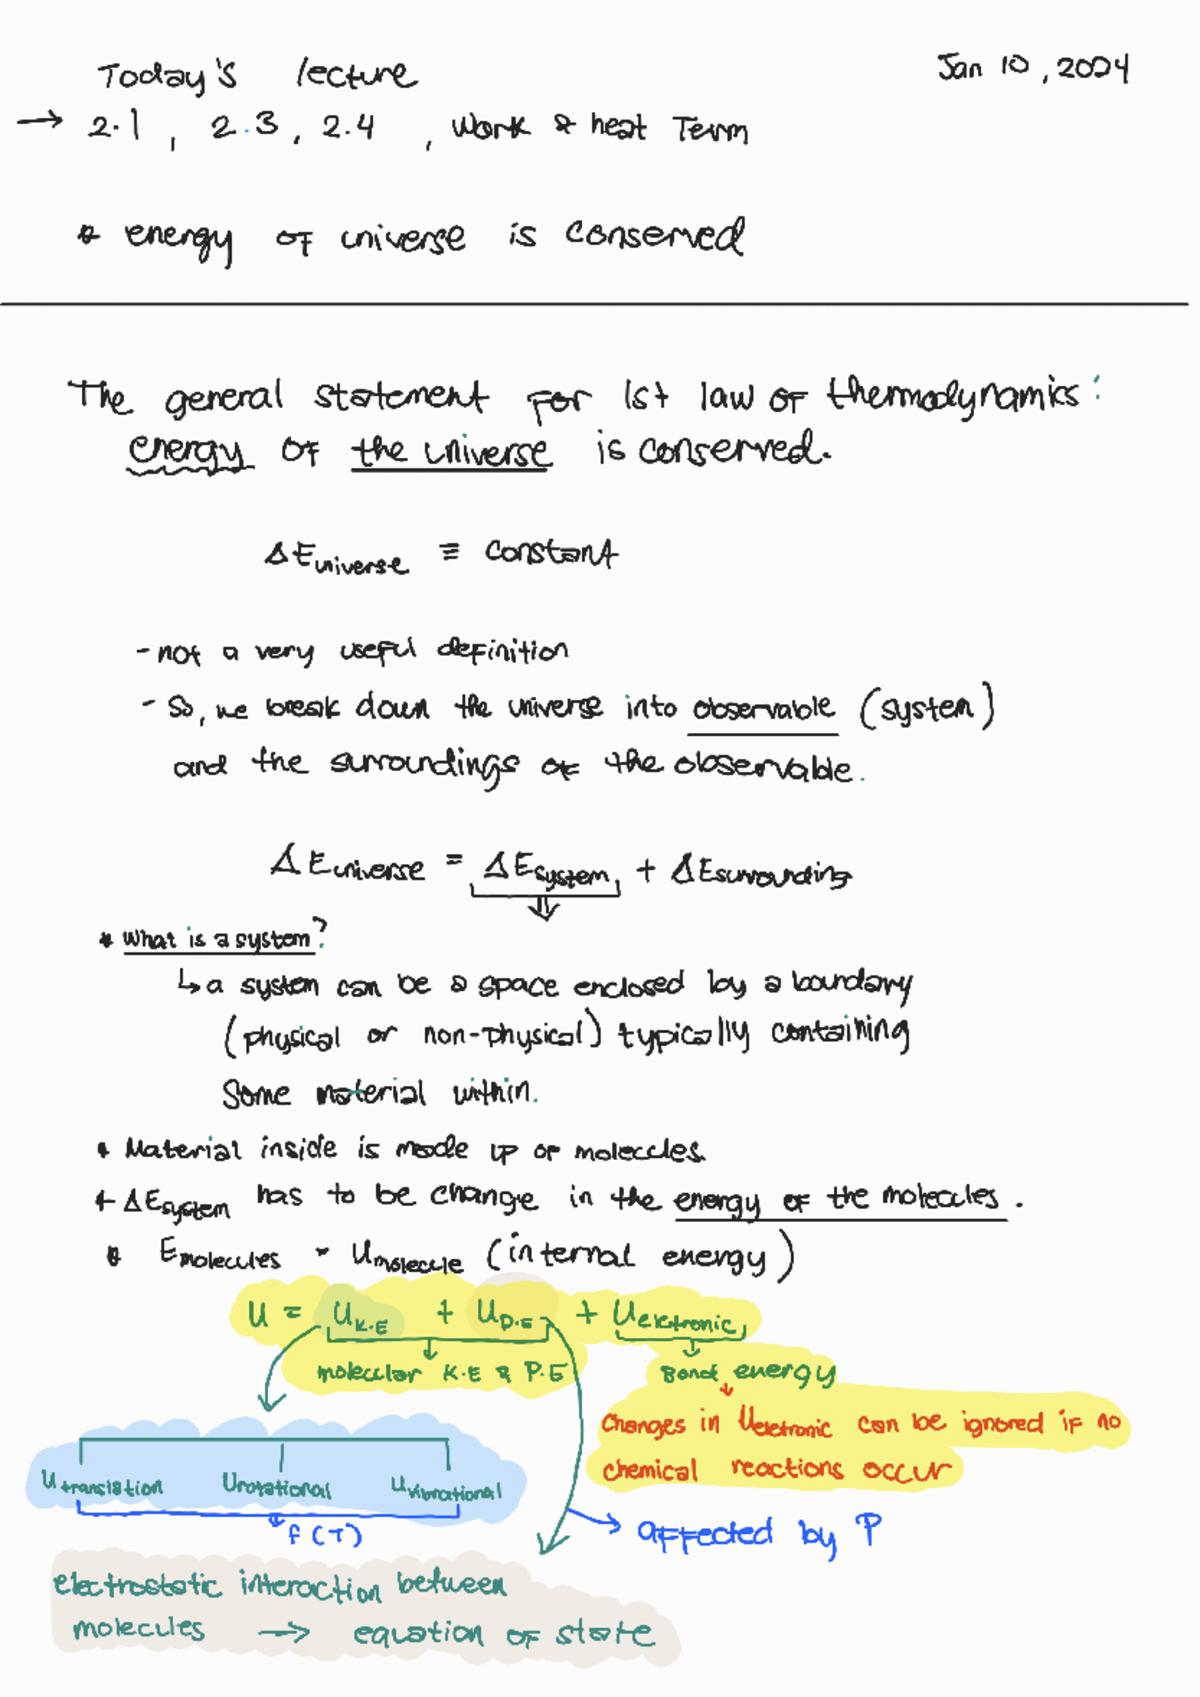 Today's lecture
Jan 10, 2024
→ 2.1, 2.3, 2.4, Work & heat Term
* energy of universe is conserved
The general statement for 1st law of thermodynamics:
energy of the universe is conserved.
ΔEuniverse ≡ constant
- not a very useful definition
- So, we break down the universe into observable (system)
and the surroundings of the observable.
ΔEuniverse = ΔEsystem + ΔEsurrounding
* What is a system?
↳ a system can be a space enclosed by a boundary
(physical or non-physical) typically containing
Some material within.
* Material inside is made up of molecules.
* ΔEsystem has to be change in the energy of the molecules.
* Emolecules - Umolecule (internal energy)
U = UK.E + UP.E + Uelectronic,
molecular K.E & P.E
Bond energy
Changes in Uelectronic can be ignored if no
chemical reactions occur
Utranslation Urotational Uvibrational
f(T)
affected by P
electrostatic interaction between
molecules → equation of state